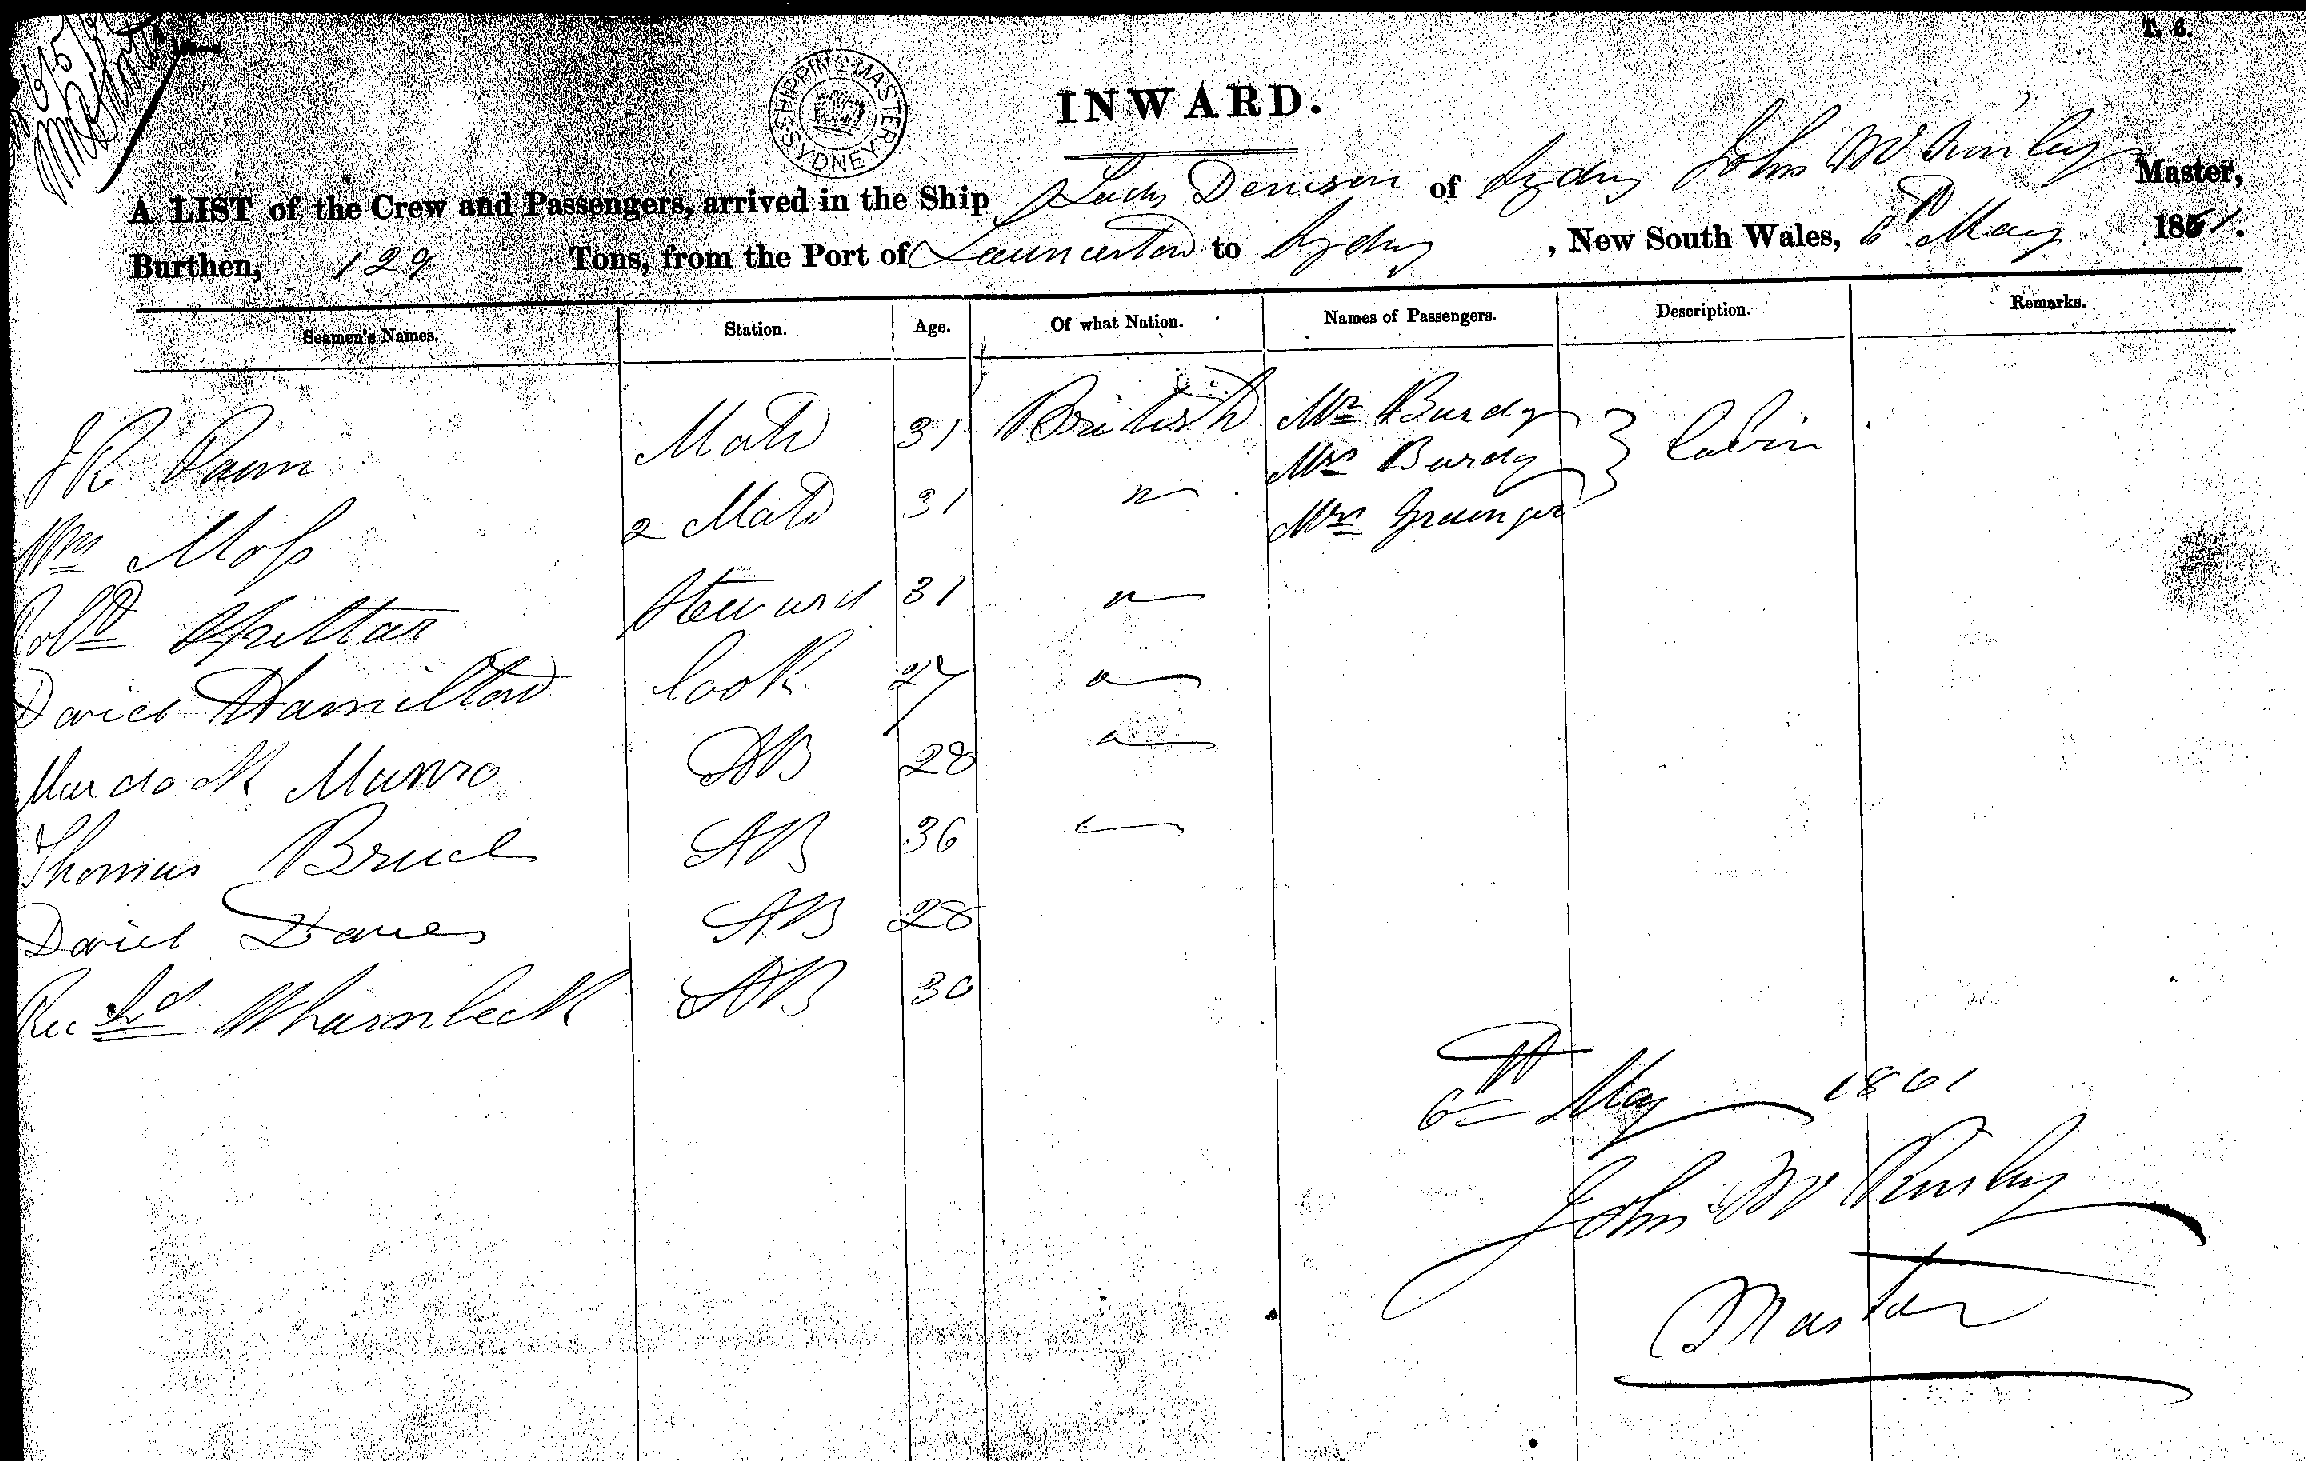 T. 6.
SHIPPING MASTER SYDNEY
INWARD.
A LIST of the Crew and Passengers, arrived in the Ship Lady Denison of Sydney John Mc Kinlay Master,
Burthen, 129 Tons, from the Port of Launceston to Sydney, New South Wales, 6th May 1861.
Seamen's Names. Station. Age. Of what Nation. Names of Passengers. Description. Remarks.
J R Mate 31 British Mr Burdy
Mrs Burdy } Cabin
Wm Moss 2 Mate 31 " Mrs Grainger
Robt Steward 31 "
David Hamilton Cook 27 "
Murdock Munro AB 28 "
Thomas Bruce AB 36 "
David Davies AB 28
Richd Wharnbeck AB 30
6th May 1861
John Mc Kinlay
Master